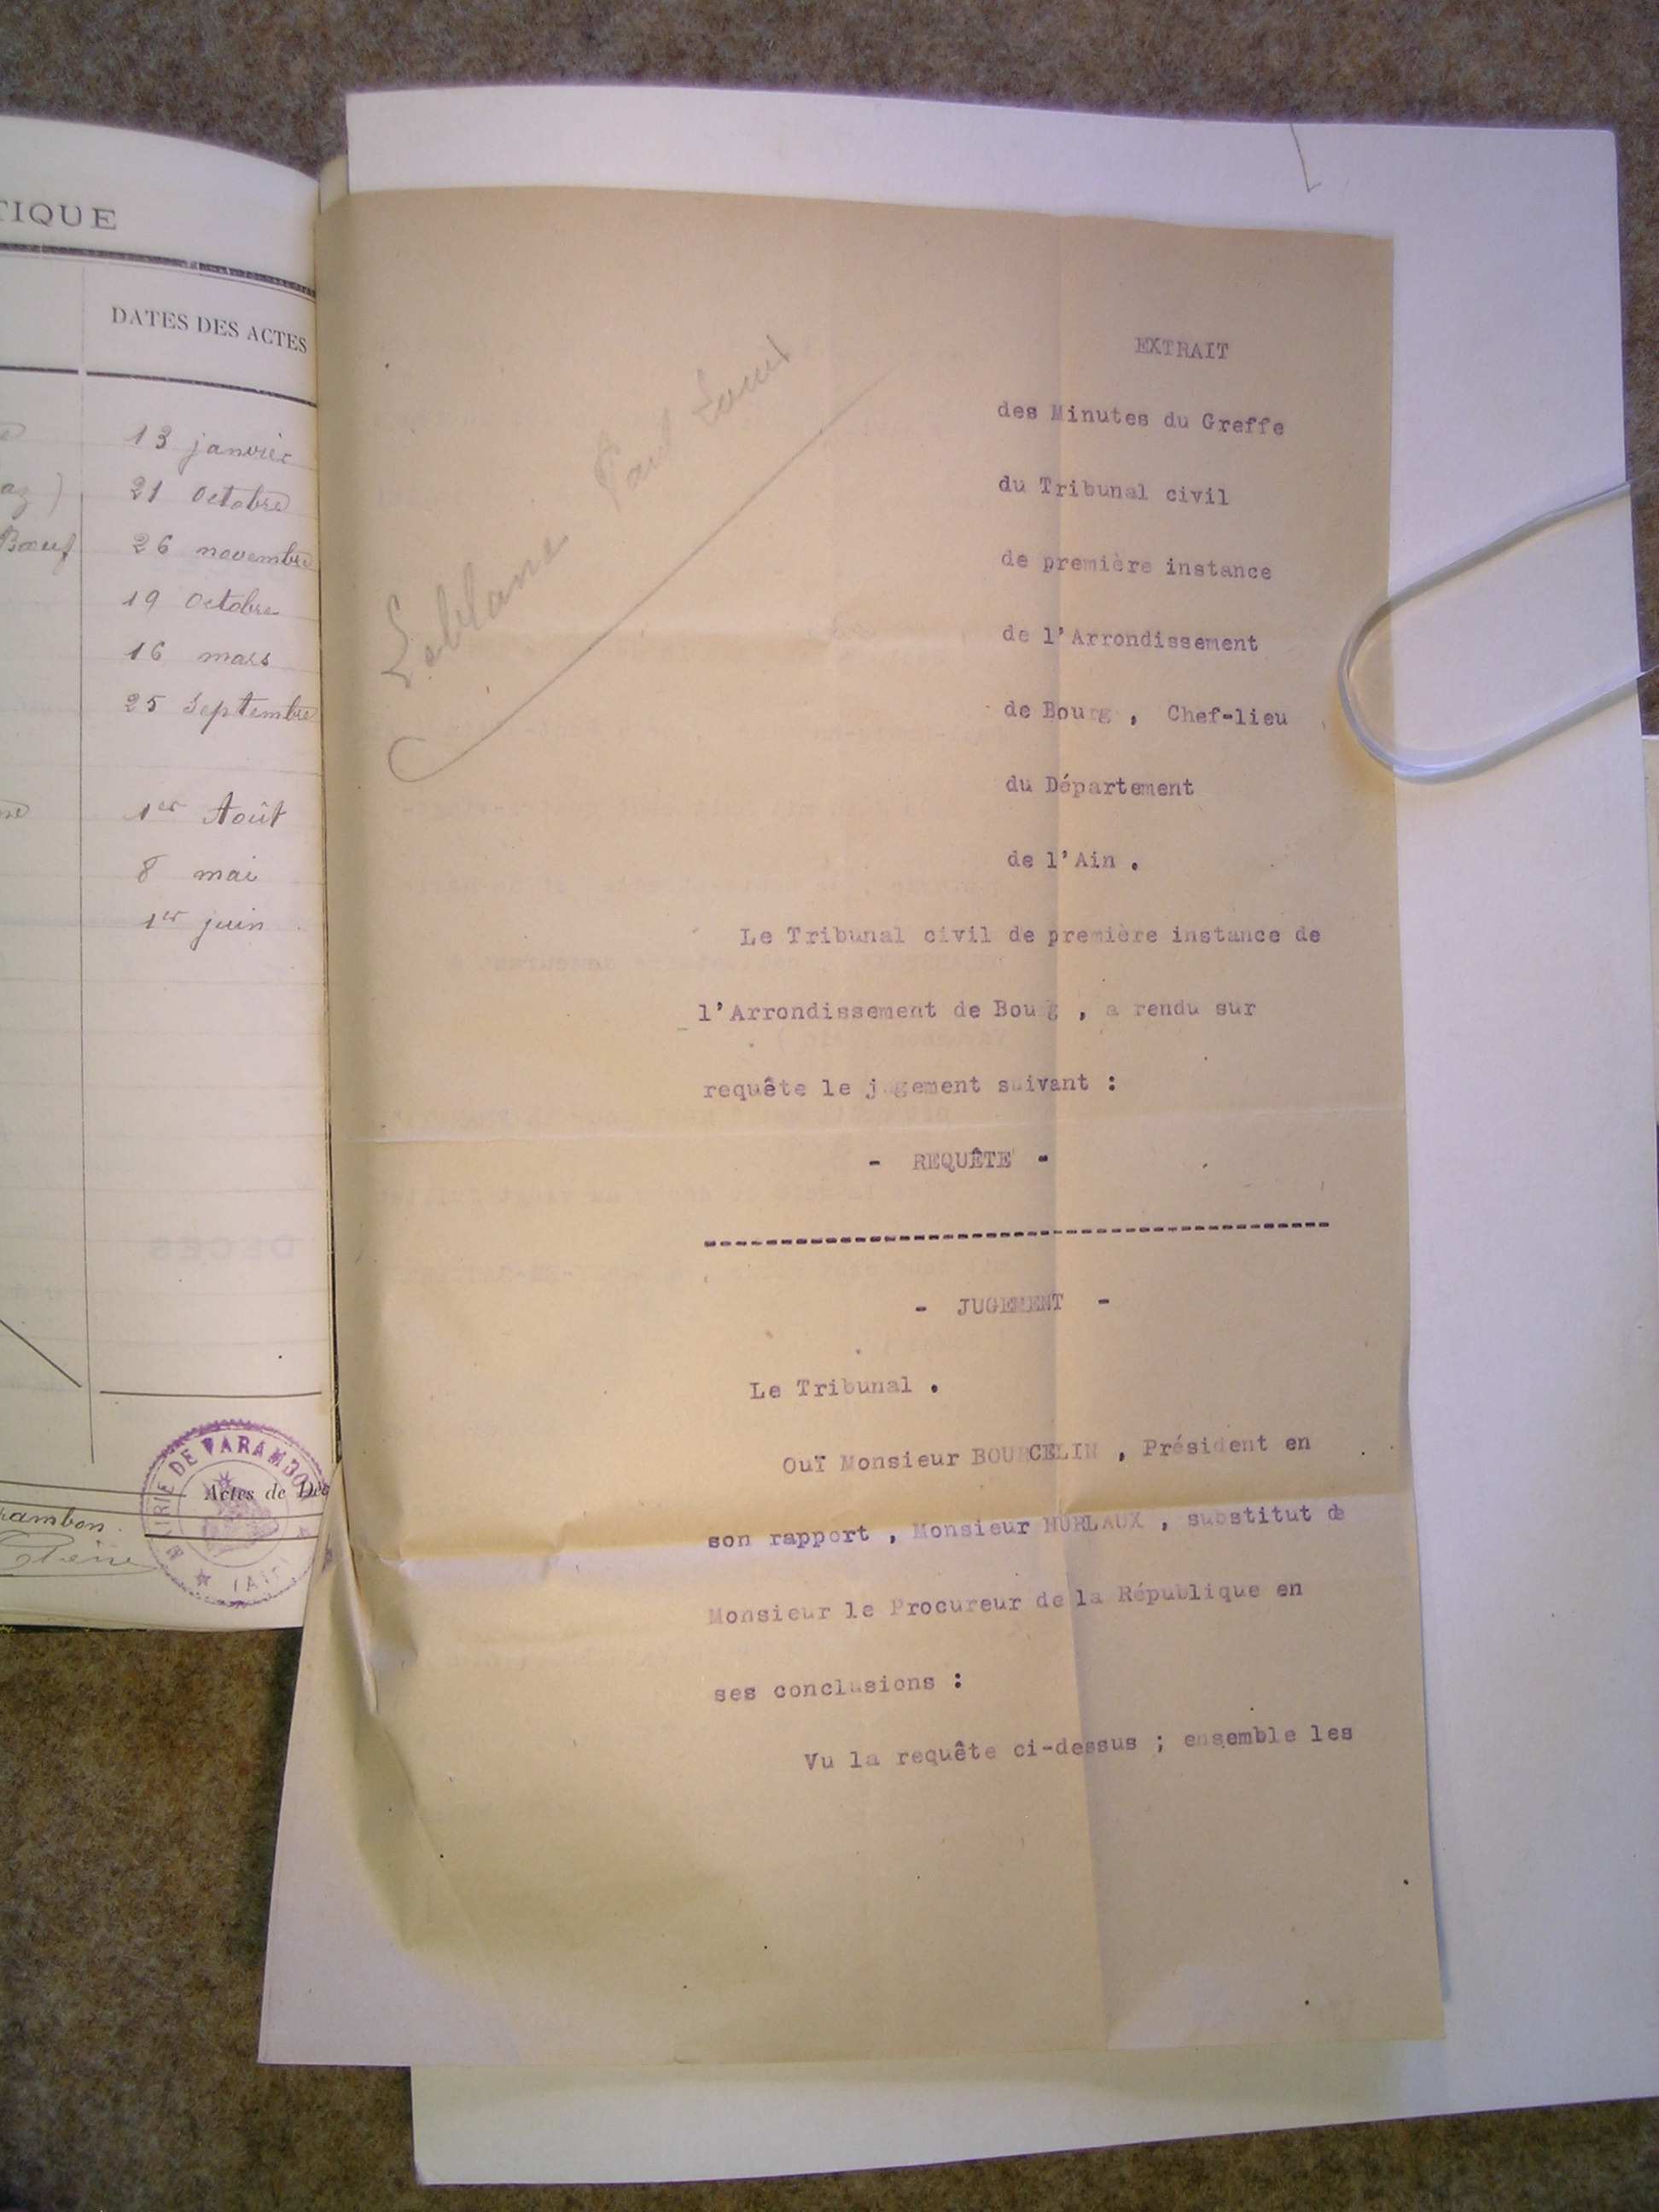 TIQUE
DATES DES ACTES
13 janvier
az) 21 Octobre
Bœuf 26 novembre
19 Octobre
16 mars
25 Septembre
1er Août
8 mai
1er juin
MAIRIE DE VARAMBON
(AIN)
Actes de Déc
rambon.
Leblanc Paul Louis
EXTRAIT
des Minutes du Greffe
du Tribunal civil
de première instance
de l'Arrondissement
de Bourg , Chef-lieu
du Département
de l'Ain .
Le Tribunal civil de première instance de
l'Arrondissement de Bourg , a rendu sur
requête le jugement suivant :
- REQUÊTE -
- JUGEMENT -
Le Tribunal .
Ouï Monsieur BOURCELIN , Président en
son rapport , Monsieur MURLAUX , substitut de
Monsieur le Procureur de la République en
ses conclusions :
Vu la requête ci-dessus ; ensemble les